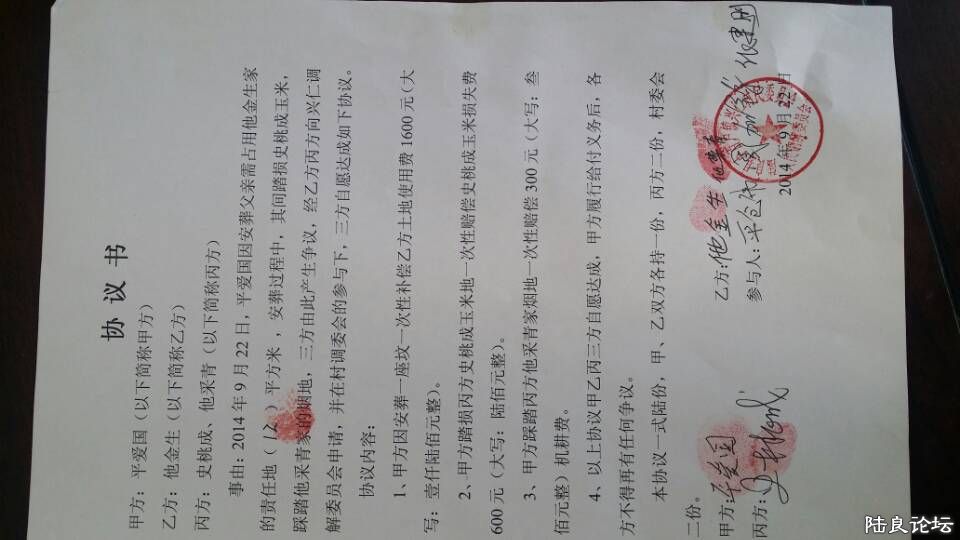 协 议 书
甲方：平爱国（以下简称甲方）
乙方：他金生（以下简称乙方）
丙方：史桃成、他采青（以下简称丙方）
事由：2014年9月22日，平爱国因安葬父亲需占用他金生家
的责任地（12）平方米，安葬过程中，其间踏损史桃成玉米，
踩踏他采青家的烟地，三方由此产生争议，经乙方丙方向兴仁调
解委员会申请，并在村调委会的参与下，三方自愿达成如下协议。
协议内容：
1、甲方因安葬一座坟一次性补偿乙方土地使用费1600元（大
写：壹仟陆佰元整）。
2、甲方踏损丙方史桃成玉米地一次性赔偿史桃成玉米损失费
600元（大写：陆佰元整）。
3、甲方踩踏丙方他采青家烟地一次性赔偿300元（大写：叁
佰元整）机耕费。
4、以上协议甲乙丙三方自愿达成，甲方履行给付义务后，各
方不得再有任何争议。
本协议一式陆份，甲、乙双方各持一份，丙方二份，村委会
二份。
甲方：平爱国 乙方：他金生 他采青
丙方：史桃成 参与人：平仓 张建明
2014年9月22日
陆良论坛